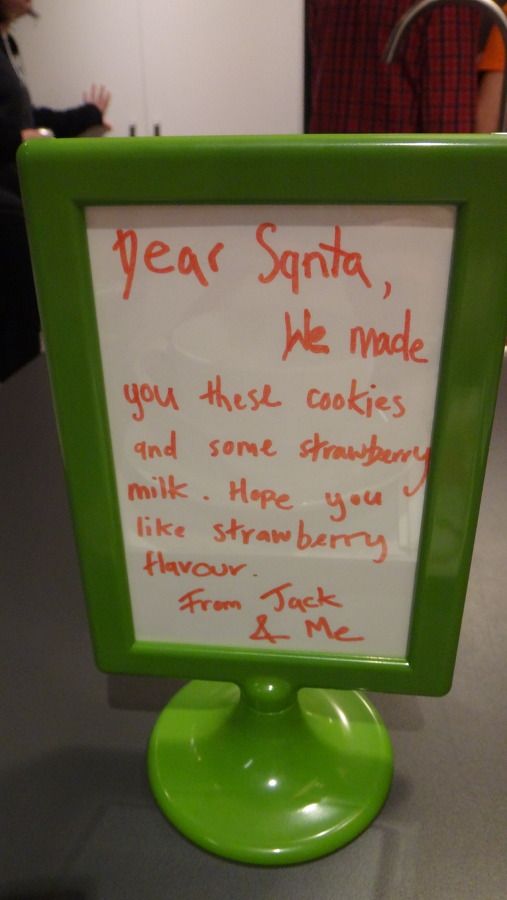 Dear Santa,
We made
you these cookies
and some strawberry
milk. Hope you
like strawberry
flavour.
From Jack
& Me